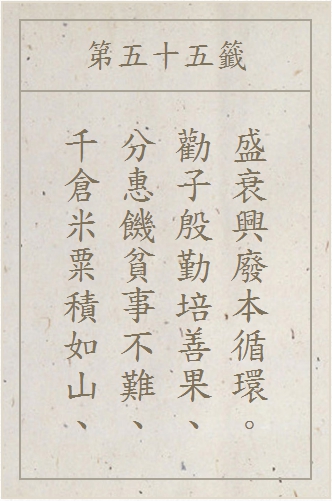 第五十五籤
千倉米粟積如山、
分惠饑貧事不難、
勸子殷勤培善果、
盛衰興廢本循環。